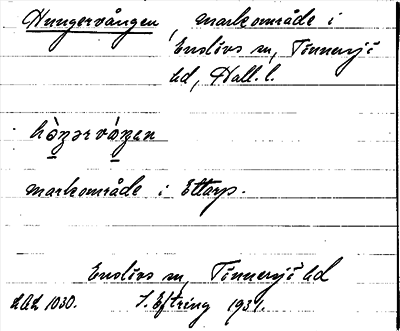 Hungervången, markområde i
Enslövs sn, Tönnersjö
hd, Hall. l.
hòŋərvóŋen
markområde i Ettarp.
Enslövs sn, Tönnersjö hd
LAL 1030. S. Eftring 1931.